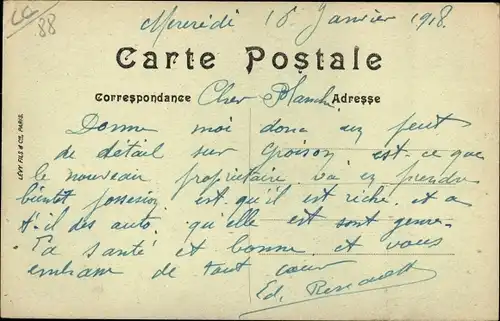 LC
88
Mercredi 16 Janvier 1918.
Carte Postale
Correspondance
Adresse
Cher Blanche
LÉVY FILS & Cie, PARIS.
Donne moi donc un peut
de détail sur Groison est-ce que
le nouveau propriétaire va en prendre
bientôt possesion est qu'il est riche et a
t-il des auto. qu'elle est sont genre.
Ta santé et bonne et vous
embrasse de tout cœur
Ed.